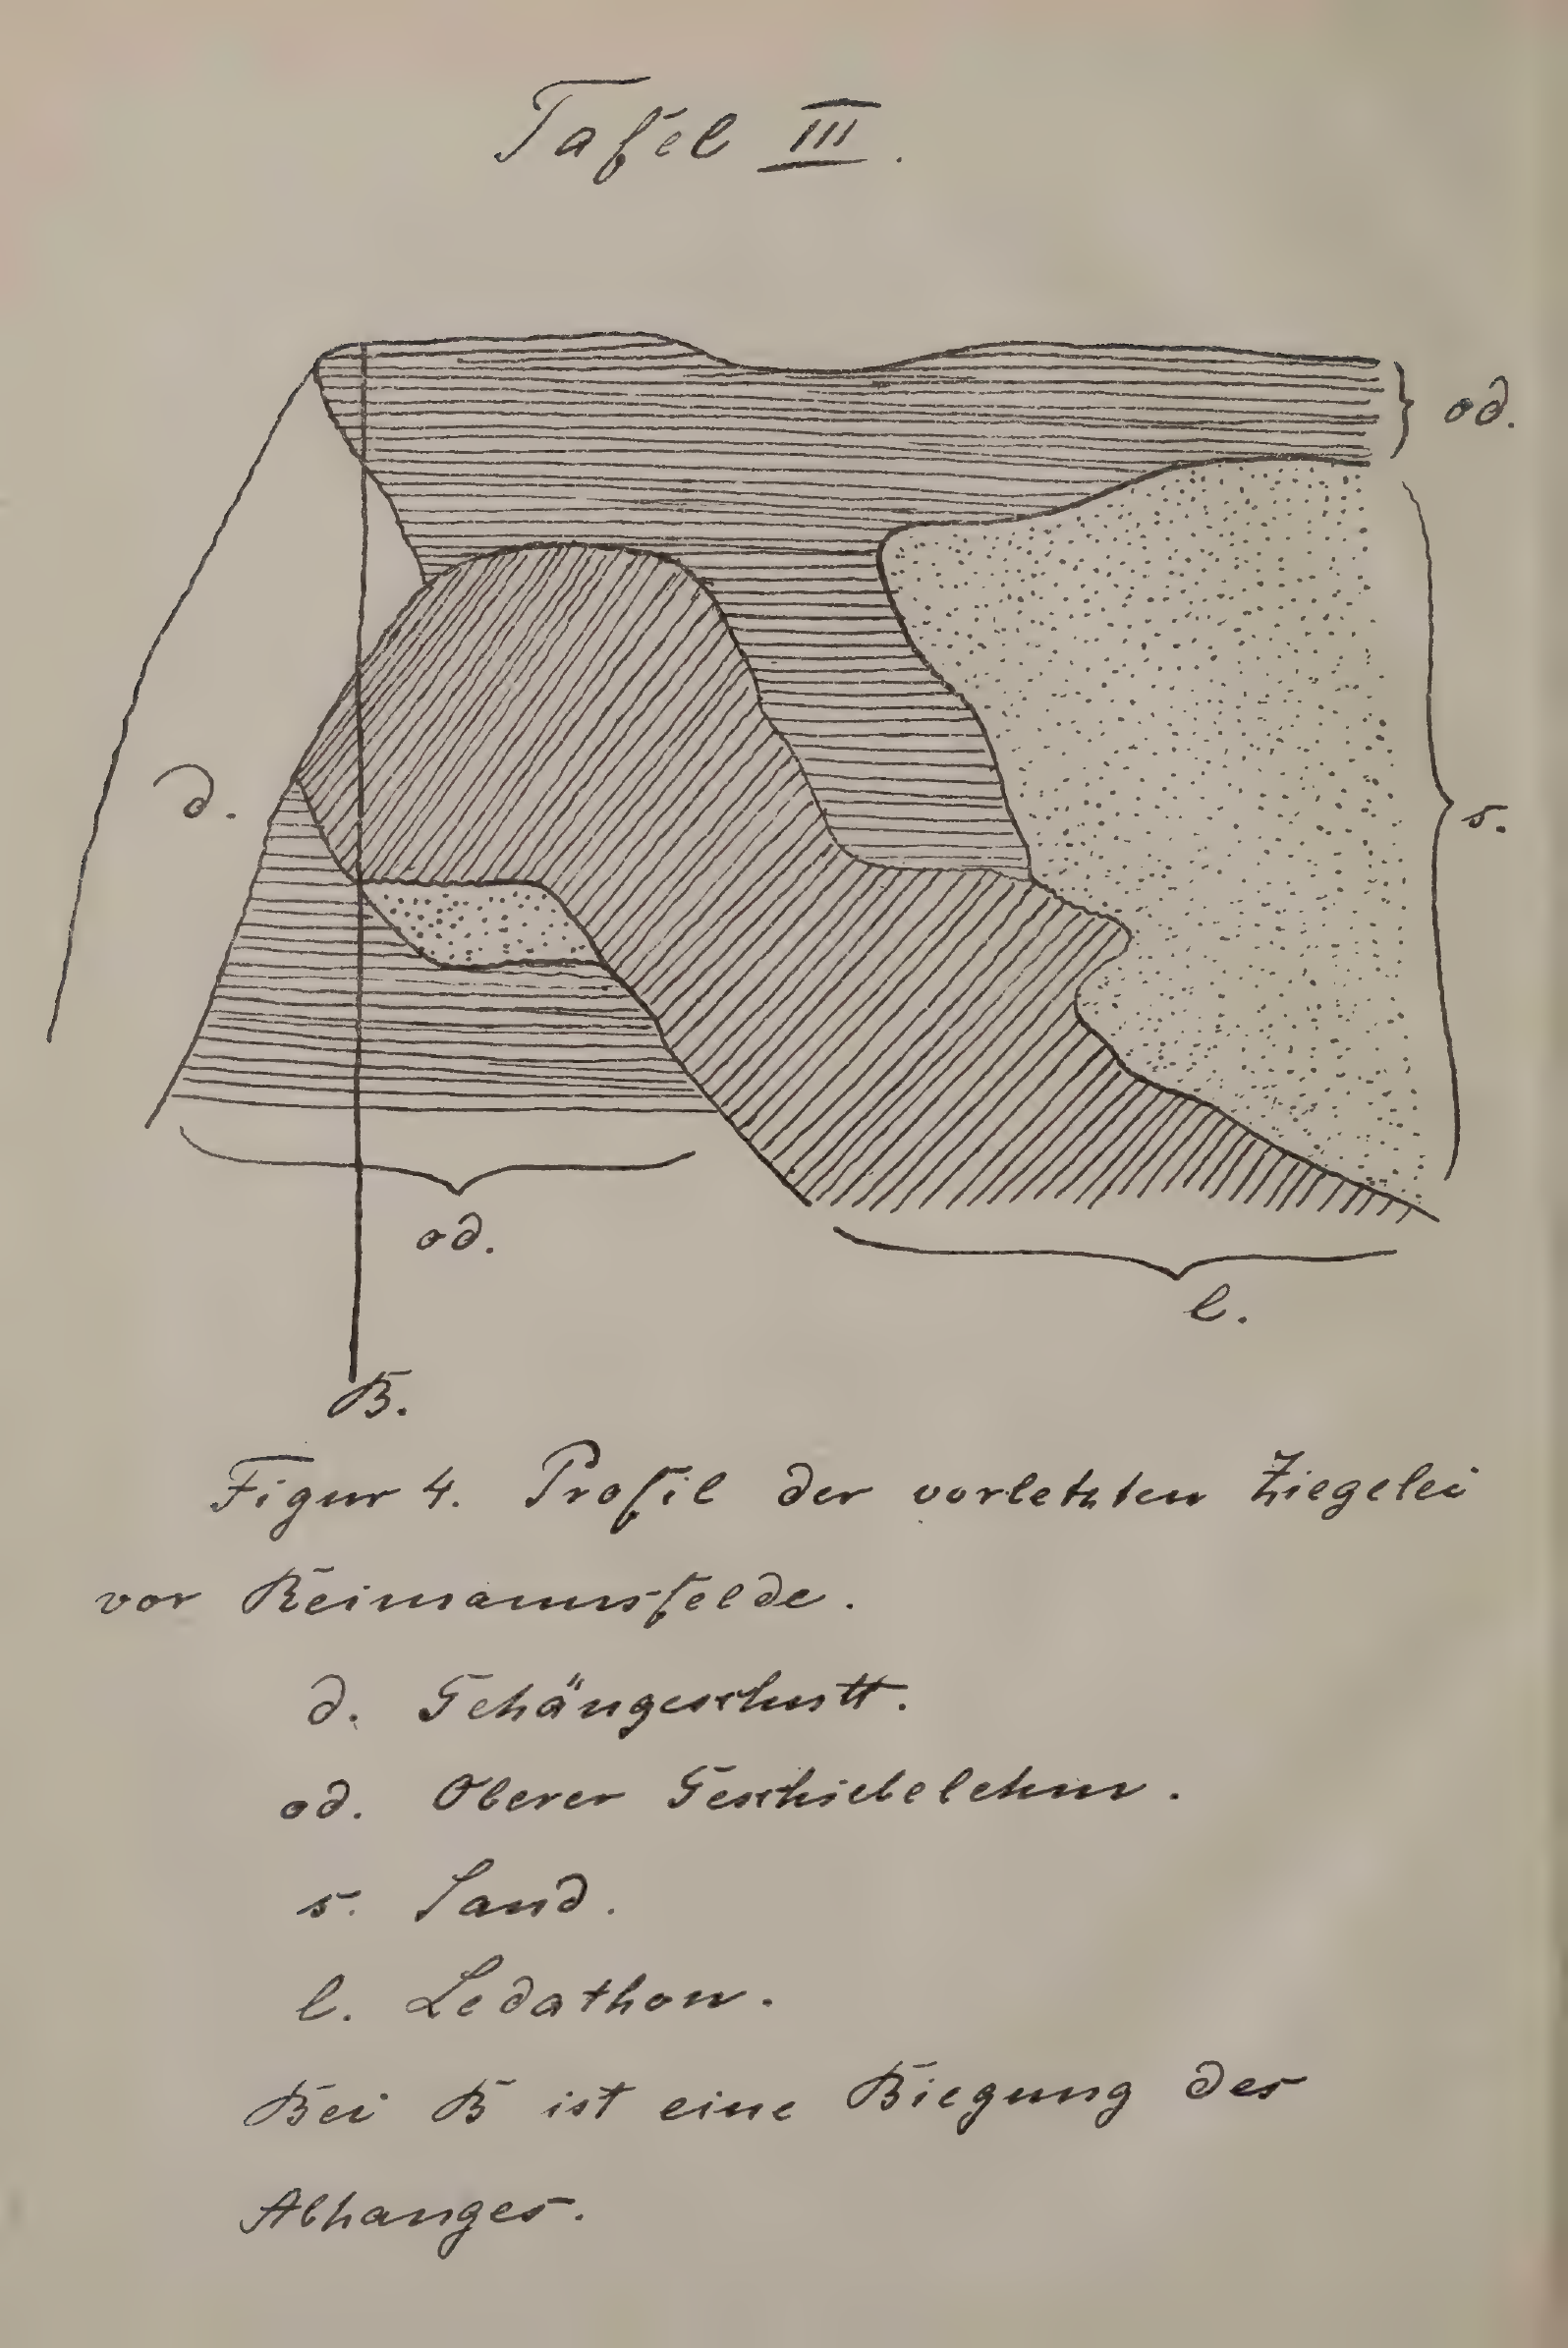 Tafel III.
od.
d.
s.
od.
l.
B.
Figur 4. Profil der vorletzten Ziegelei
vor Reimannsfelde.
d. Gehängeschutt.
od. Oberer Geschiebelehm.
s. Sand.
l. Ledathon.
Bei B ist eine Biegung des
Abhanges.